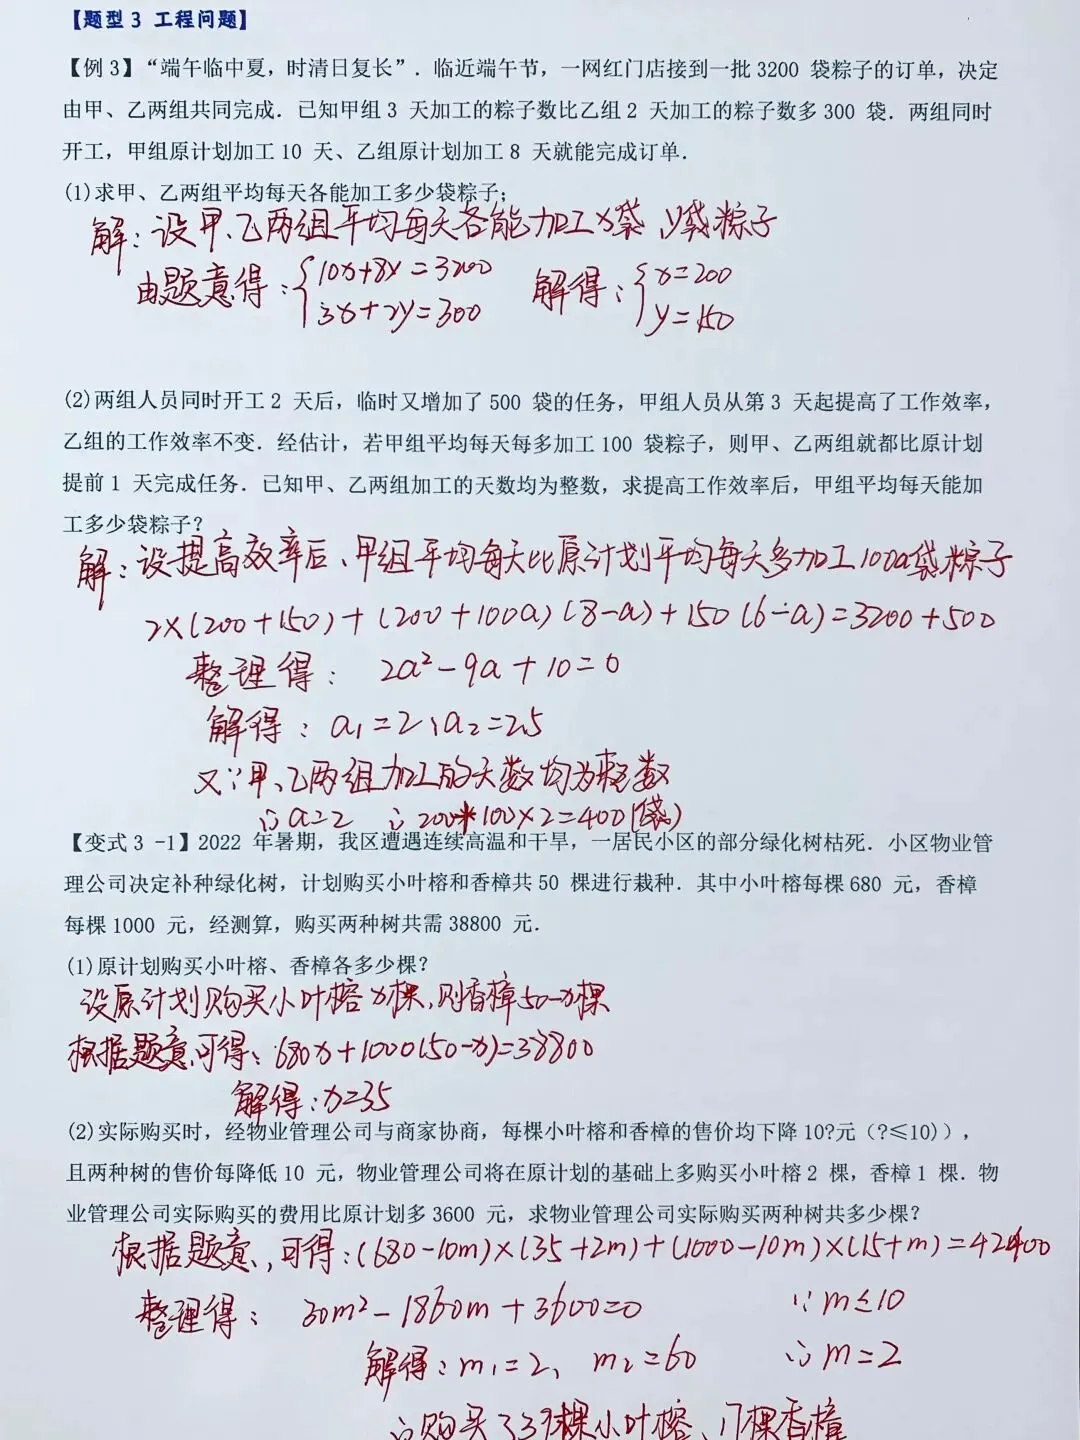 【题型3 工程问题】
【例3】“端午临中夏，时清日复长”．临近端午节，一网红门店接到一批3200 袋粽子的订单，决定
由甲、乙两组共同完成．已知甲组3 天加工的粽子数比乙组2 天加工的粽子数多300 袋．两组同时
开工，甲组原计划加工10 天、乙组原计划加工8 天就能完成订单．
(1)求甲、乙两组平均每天各能加工多少袋粽子；
解：设甲、乙两组平均每天各能加工x袋、y袋粽子
由题意得：{10x+8y=3200 解得：{x=200
3x+2y=300 y=150
(2)两组人员同时开工2 天后，临时又增加了500 袋的任务，甲组人员从第3 天起提高了工作效率，
乙组的工作效率不变．经估计，若甲组平均每天每多加工100 袋粽子，则甲、乙两组就都比原计划
提前1 天完成任务．已知甲、乙两组加工的天数均为整数，求提高工作效率后，甲组平均每天能加
工多少袋粽子？
解：设提高效率后、甲组平均每天比原计划平均每天多加工100a袋粽子
2×(200+150)+(200+100a)(8-a)+150(6-a)=3200+500
整理得： 2a²-9a+10=0
解得：a₁=2、a₂=2.5
又∵甲、乙两组加工的天数均为整数
∴a=2 ∴200+100×2=400(袋)
【变式3 -1】2022 年暑期，我区遭遇连续高温和干旱，一居民小区的部分绿化树枯死．小区物业管
理公司决定补种绿化树，计划购买小叶榕和香樟共50 棵进行栽种．其中小叶榕每棵680 元，香樟
每棵1000 元，经测算，购买两种树共需38800 元．
(1)原计划购买小叶榕、香樟各多少棵？
设原计划购买小叶榕x棵，则香樟50-x棵
根据题意，可得：680x+1000(50-x)=38800
解得：x=35
(2)实际购买时，经物业管理公司与商家协商，每棵小叶榕和香樟的售价均下降10?元（?≤10)），
且两种树的售价每降低10 元，物业管理公司将在原计划的基础上多购买小叶榕2 棵，香樟1 棵．物
业管理公司实际购买的费用比原计划多3600 元，求物业管理公司实际购买两种树共多少棵？
根据题意，可得：(680-10m)×(35+2m)+(1000-10m)×(15+m)=42400
整理得： 30m²-1860m+3600=0 ∵m≤10
解得：m₁=2、 m₂=60 ∴m=2
∴购买了39棵小叶榕、17棵香樟